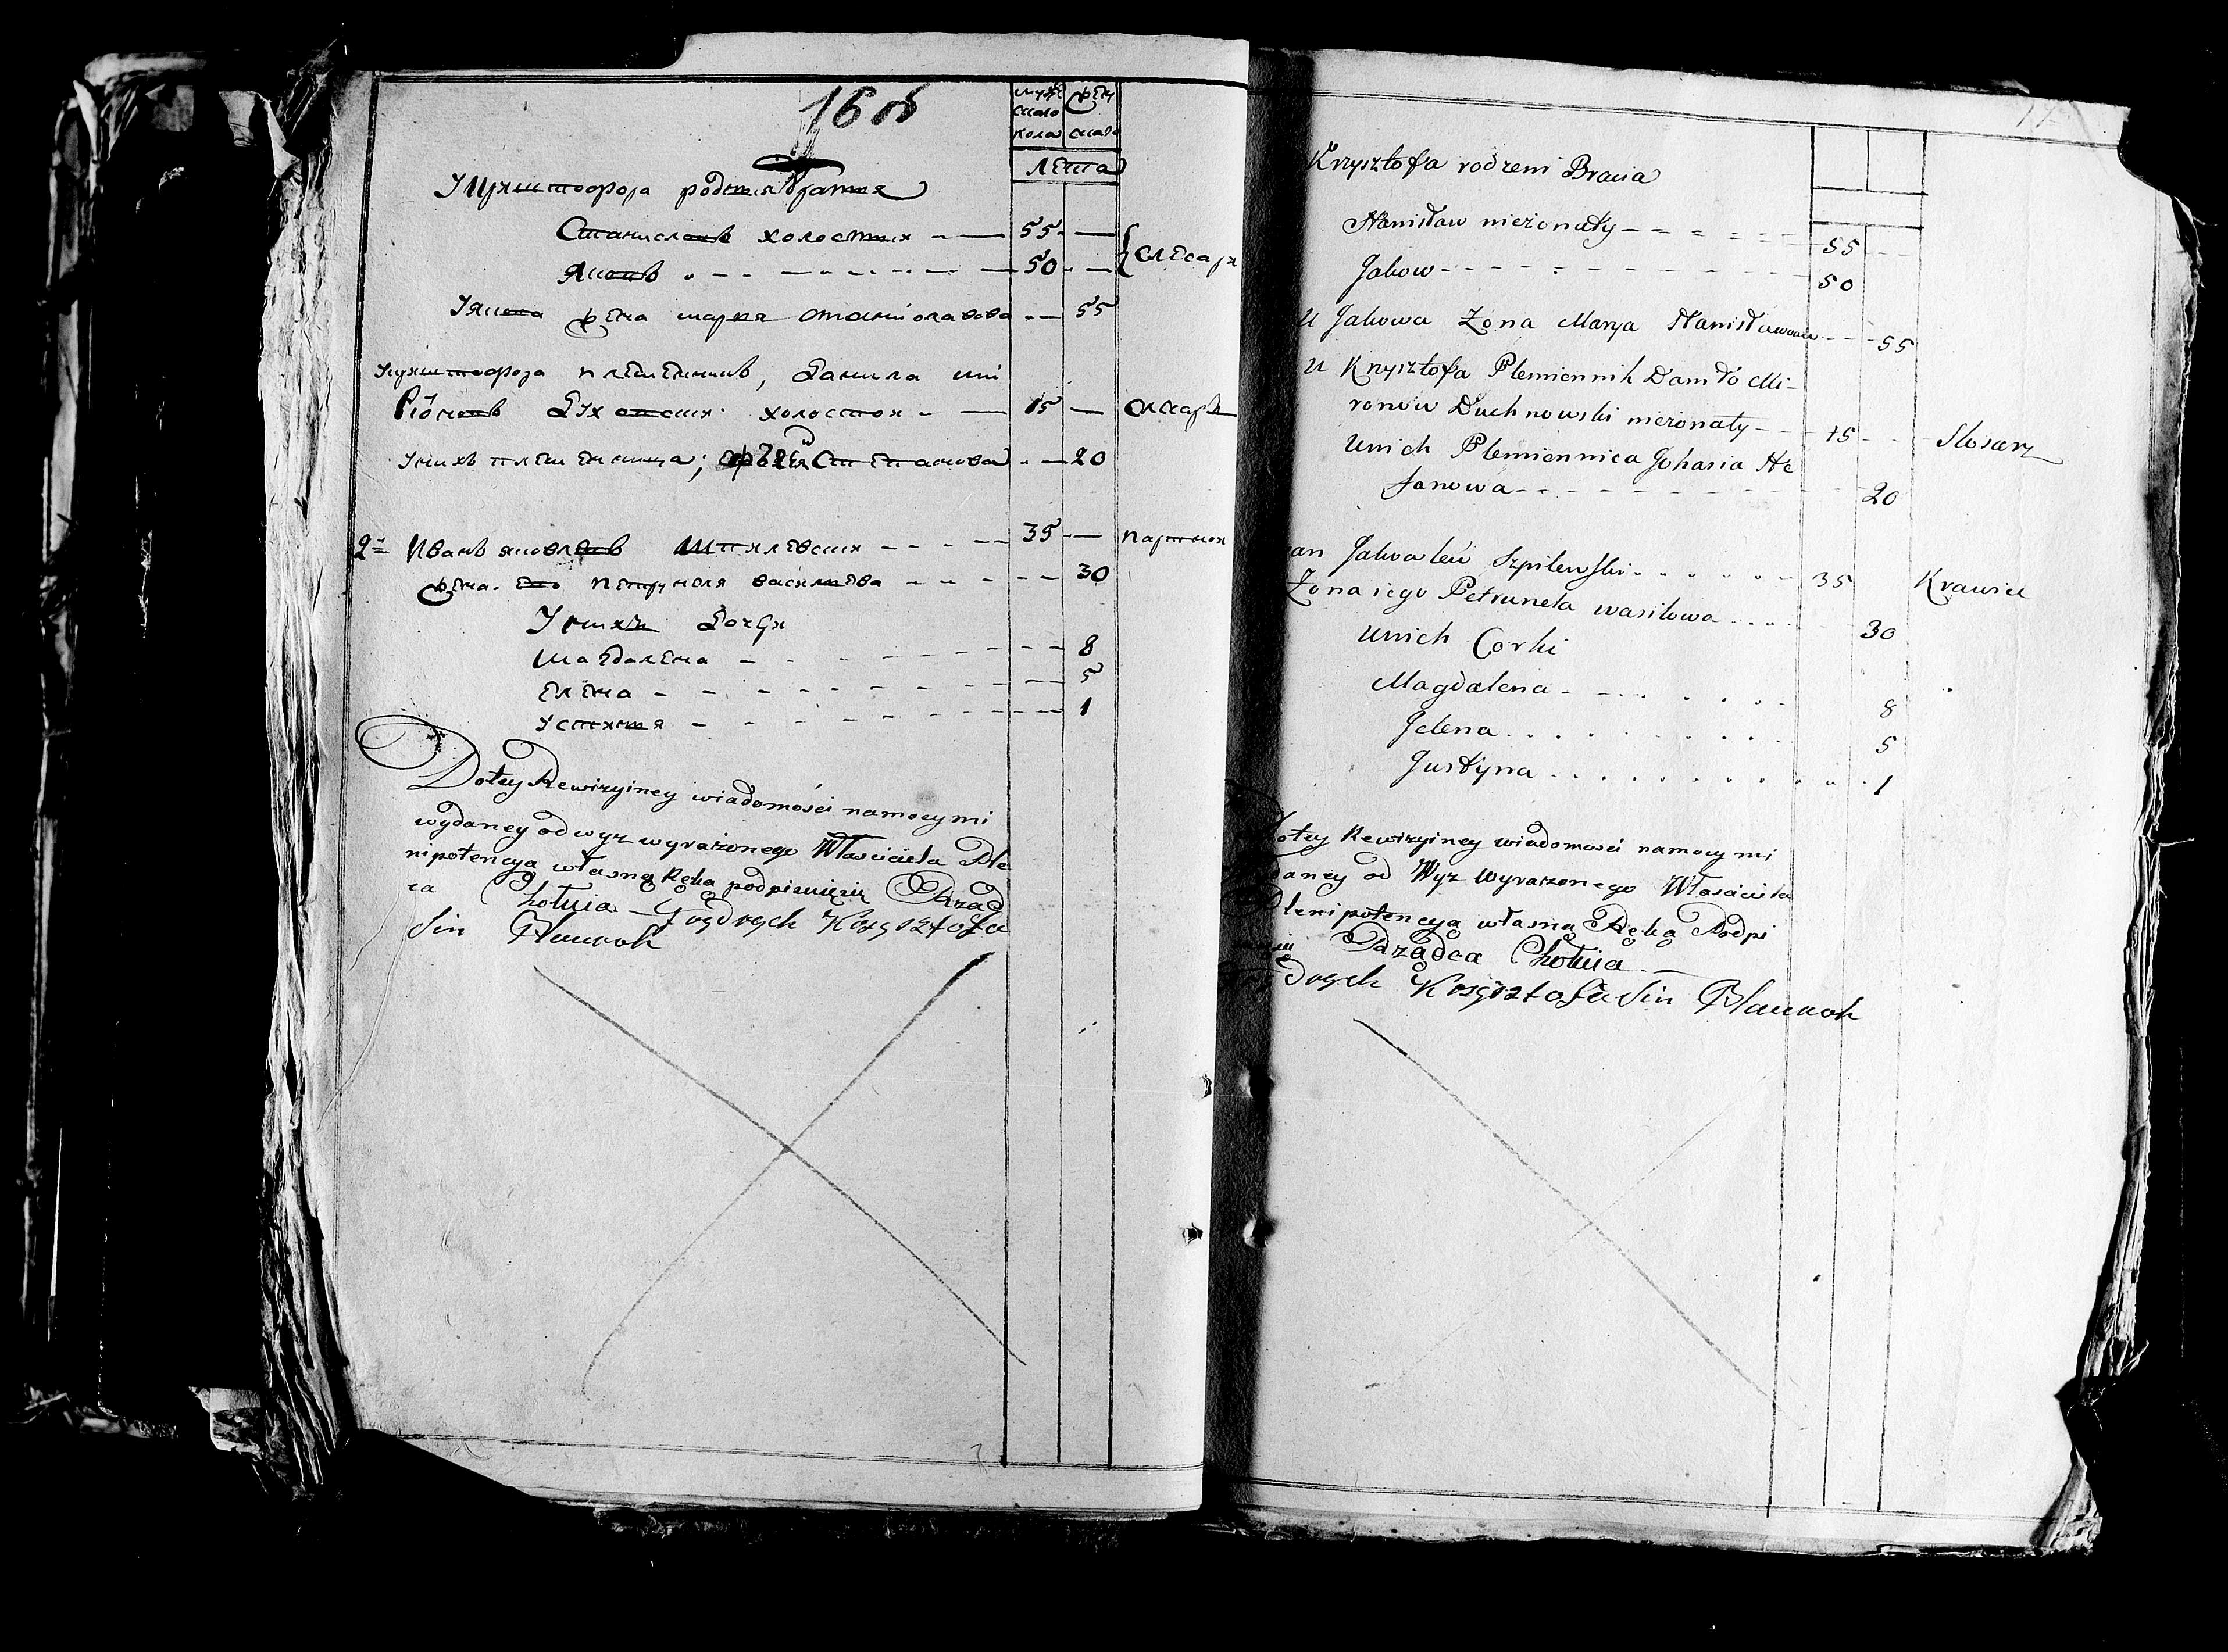 16 об
мужс
каго
пола
жен
скаго
лета
У Криштофора родныя братья
Станиславъ холостыи 55
Яковъ 50
слесари
У Якова жена Марья Станиславова 55
У Криштофора племенникъ, Данила Ми
роновъ Духновски холостои 15 слесарь
У нихъ племенница, Степанова 20
2й Иванъ Яковлевъ Шпилевски 35 портнои
жена его Петрунеля Васильева 30
У нихъ дочери
Магдалена 8
Елена 5
Устинья 1
Dotey Rewizyiney wiadomości namocy mi
wydaney od wyz wyrażonego Właściciela Ple
nipotencyą własną Ręką podpisuię Rządc
ca Chołuia
Sin
17
Krzysztofa rodzeni Bracia
Stanisław nieżonaty 55
Jakow 50
U Jakowa Zona Marya Stanisławowa 55
U Krzysztofa Plemiennik Daniło Mi-
ronow Duchnowski nieżonaty 15 Slosarz
Unich Plemiennica Johasia Ste
fanowa 20
an Jakowlew Szpilewski 35 Krawiec
Zona iego Petrunela Wasilowa 30
Unich Corki
Magdalena 8
Jelena 5
Justyna 1
otey Rewizyiney wiadomosci namocy mi
daney od Wyz Wyrazonego Właściciela
Plenipotencyą własną Ręką Podpi
suię Rządca Chołuia
Sin